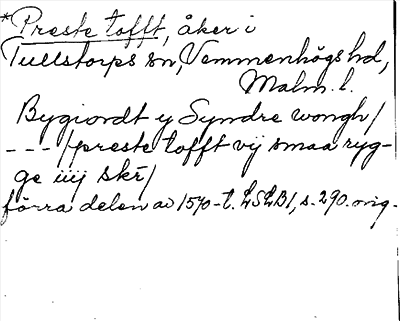 *Preste tofft, åker i
Tullstorps sn, Vemmenhögs hd,
Malm. l.
Bygiordt y Syndre wongh /
- - - / preste tofft vij smaa ryg-
ge iiij skr̄ /
förra delen av 1570-t. LSLB1, s. 290. orig.